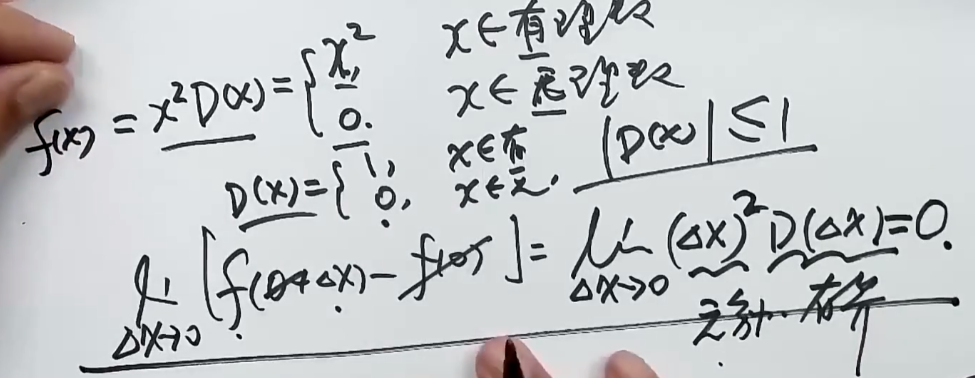 f(x) = x²D(x) = { x², x∈有理数
0. x∈无理数
D(x) = { 1, x∈有
0, x∈无. |D(x)| ≤ 1
lim Δx→0 [f(0+Δx) - f(0)] = lim Δx→0 (Δx)² D(Δx) = 0.
无穷小. 有界